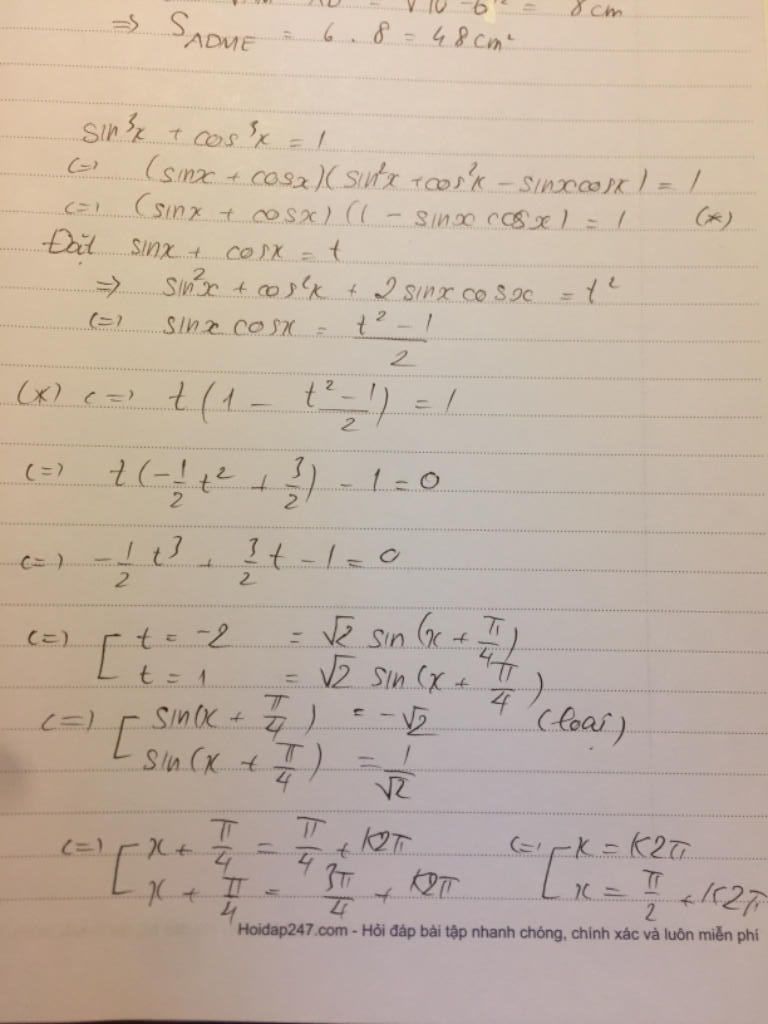 = √10 - 6² = 8cm
=> S_ADME = 6 . 8 = 48cm²
sin³x + cos³x = 1
<=> (sinx + cosx)(sin²x + cos²x - sinxcosx) = 1
<=> (sinx + cosx)(1 - sinx cosx) = 1 (*)
Đặt sinx + cosx = t
=> sin²x + cos²x + 2sinx cosx = t²
<=> sinx cosx = (t² - 1)/2
(*) <=> t(1 - (t² - 1)/2) = 1
<=> t(-1/2 t² + 3/2) - 1 = 0
<=> -1/2 t³ + 3/2 t - 1 = 0
<=> [ t = -2 = √2 sin(x + π/4)
t = 1 = √2 sin(x + π/4)
<=> [ sin(x + π/4) = -√2 (loại)
sin(x + π/4) = 1/√2
<=> [ x + π/4 = π/4 + k2π <=> [ x = k2π
x + π/4 = 3π/4 + k2π x = π/2 + k2π
Hoidap247.com - Hỏi đáp bài tập nhanh chóng, chính xác và luôn miễn phí